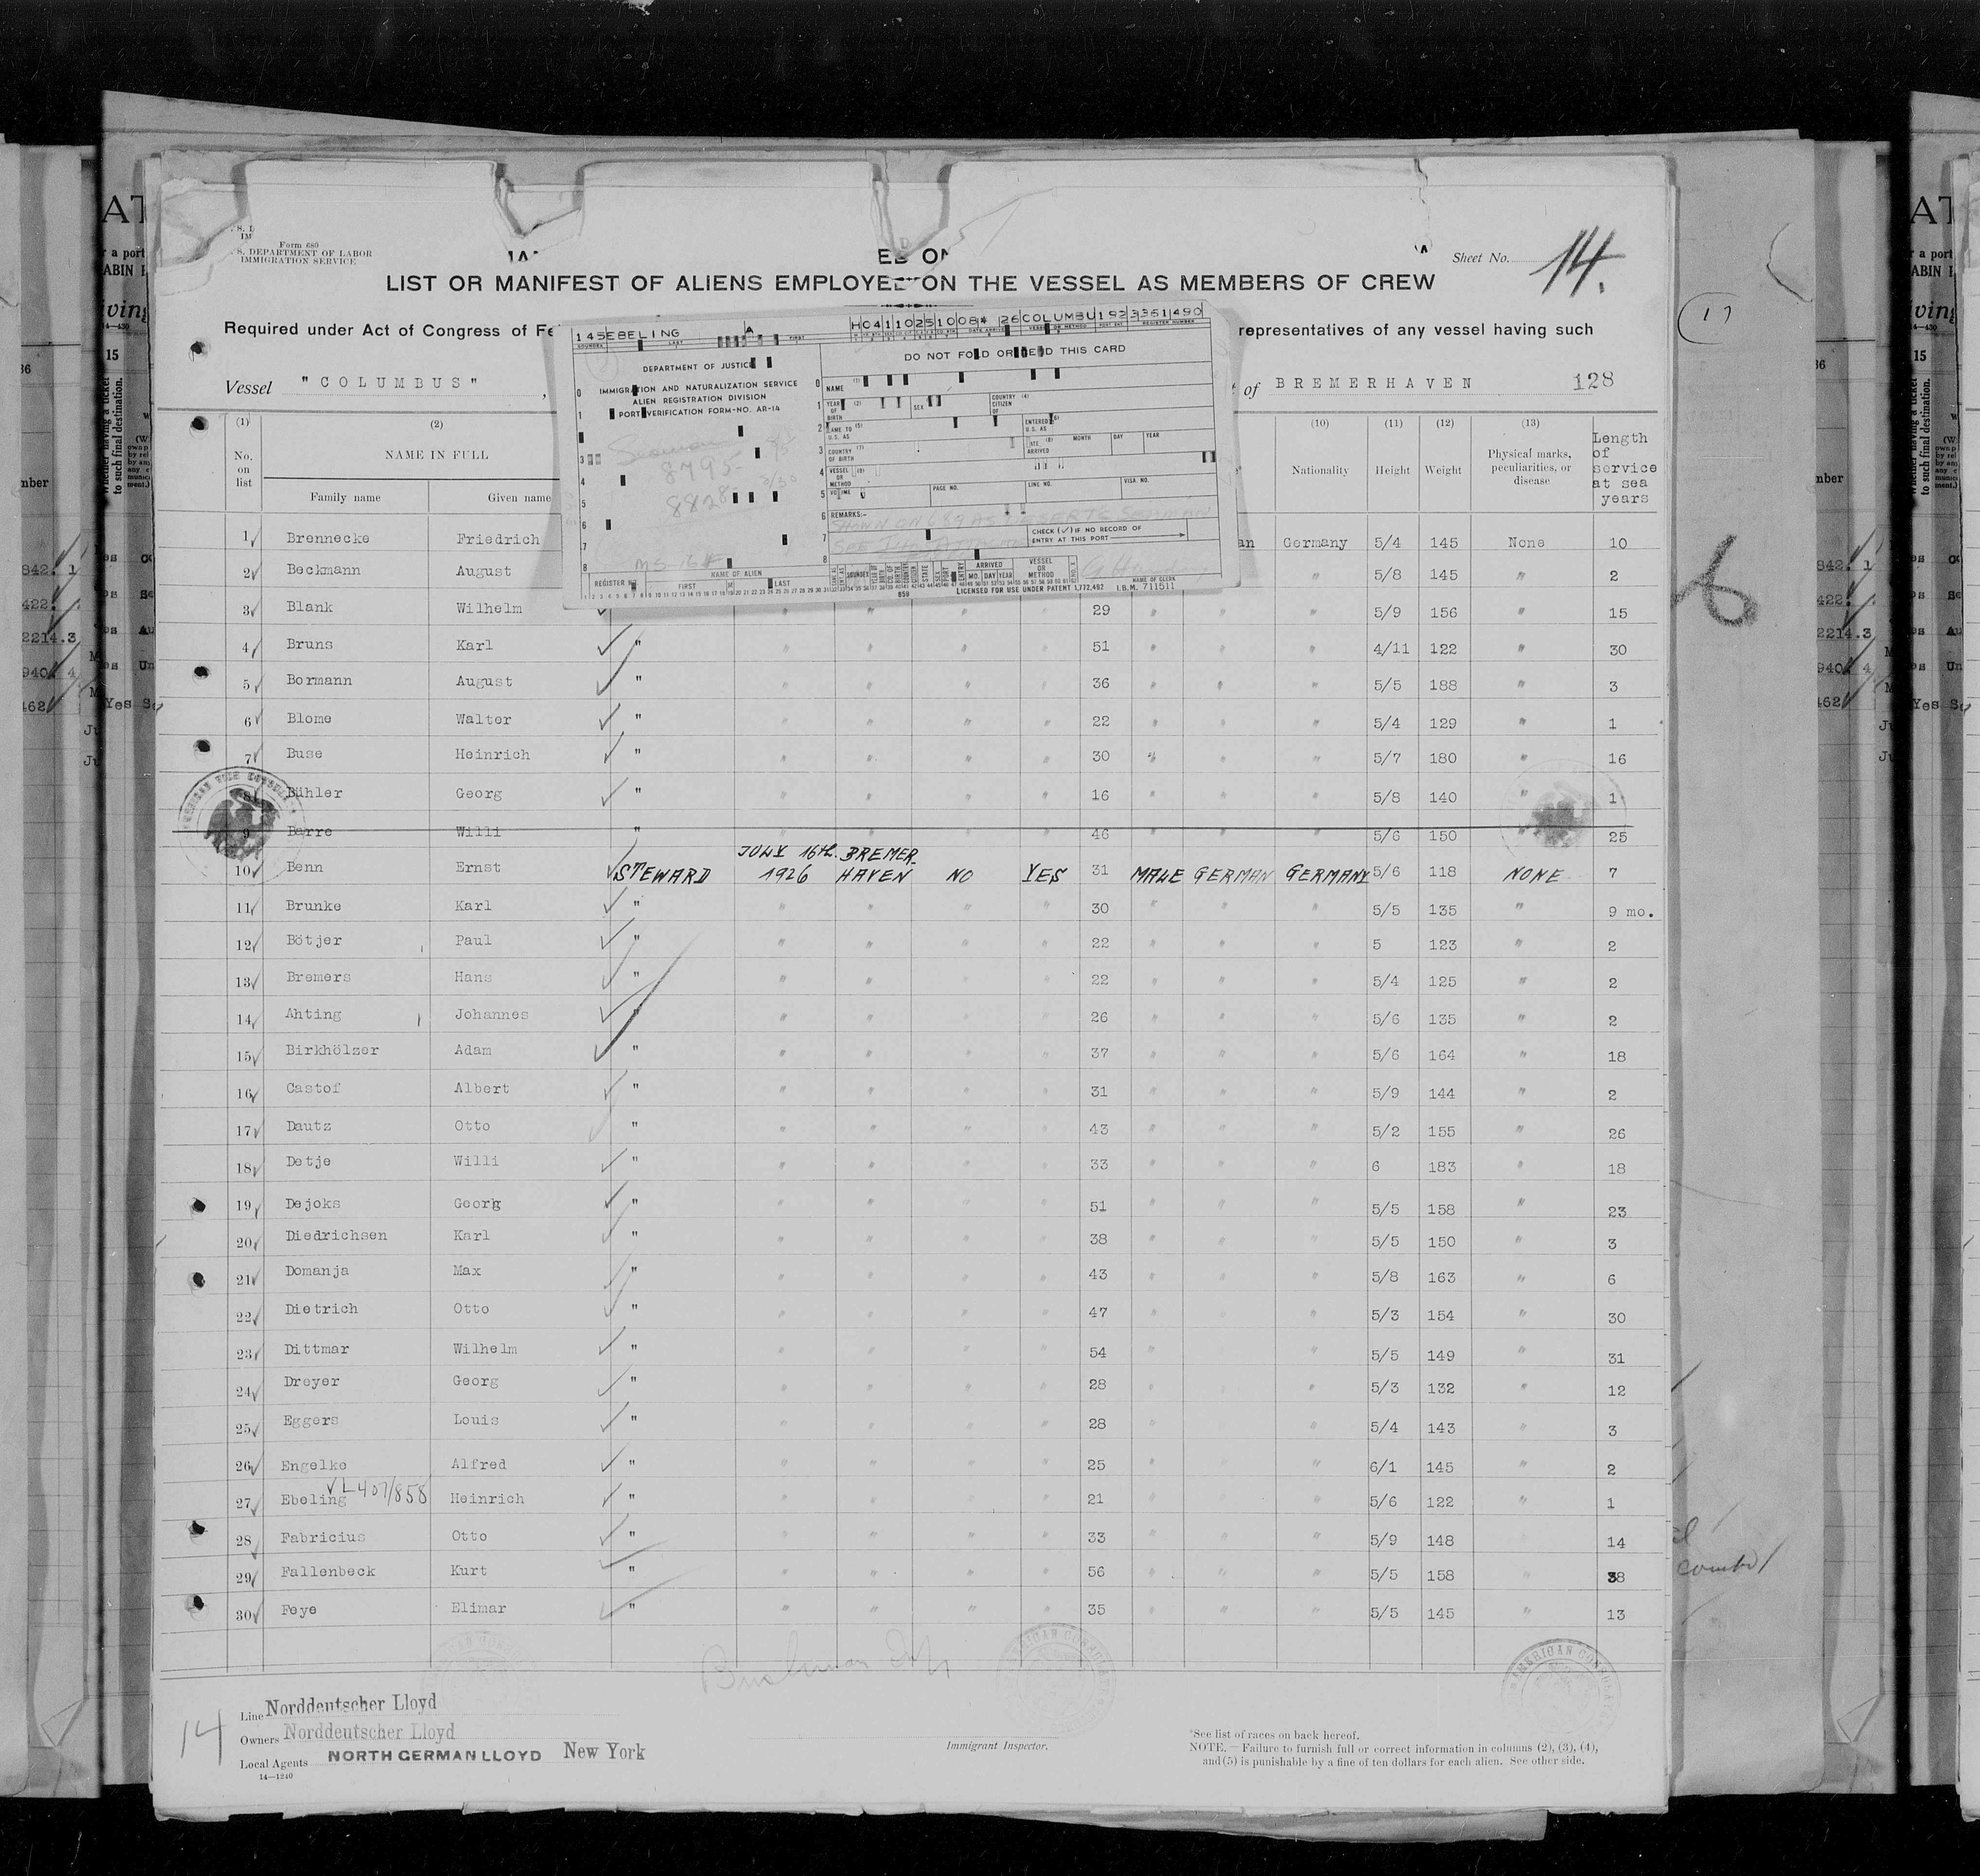 Form 680
S. DEPARTMENT OF LABOR
IMMIGRATION SERVICE
Sheet No. 14.
LIST OR MANIFEST OF ALIENS EMPLOYED ON THE VESSEL AS MEMBERS OF CREW
Required under Act of Congress of Fe
representatives of any vessel having such
Vessel "COLUMBUS",
of BREMERHAVEN 128
14SEBELING A H04110251008 26COLUMBU1923361490
DEPARTMENT OF JUSTICE
IMMIGRATION AND NATURALIZATION SERVICE
ALIEN REGISTRATION DIVISION
PORT VERIFICATION FORM-NO. AR-14
Seaman
8795
8828
DO NOT FOLD OR BEND THIS CARD
NAME (1)
YEAR OF BIRTH (2) SEX COUNTRY CITIZEN OF (4)
CAME TO U.S. AS (5) ENTERED U.S. AS (6)
COUNTRY OF BIRTH (7) DATE ARRIVED (8) MONTH DAY YEAR
VESSEL OR METHOD
VOLUME PAGE NO. LINE NO. VISA NO.
REMARKS:-
CHECK (✓) IF NO RECORD OF ENTRY AT THIS PORT
REGISTER NO. FIRST NAME OF ALIEN LAST
ARRIVED MO. DAY YEAR VESSEL OR METHOD
NAME OF CLERK
859 LICENSED FOR USE UNDER PATENT 1,772,492 I.B.M. 711511
(1) (2) (10) (11) (12) (13)
No. on list NAME IN FULL Nationality Height Weight Physical marks, peculiarities, or disease Length of service at sea years
Family name Given name
1 Brennecke Friedrich an Germany 5/4 145 None 10
2 Beckmann August " 5/8 145 " 2
3 Blank Wilhelm " " " " 29 " " 5/9 156 " 15
4 Bruns Karl " " " " " 51 " " " 4/11 122 " 30
5 Bormann August " " " " " 36 " " " 5/5 188 " 3
6 Blome Walter " " " " " 22 " " " 5/4 129 " 1
7 Buse Heinrich " " " " " 30 " " " 5/7 180 " 16
8 Bühler Georg " " " " " 16 " " " 5/8 140 " 1
9 Barre Willi " " " " " 46 " " " 5/6 150 " 25
10 Benn Ernst STEWARD JULY 16th. 1926 BREMERHAVEN NO YES 31 MALE GERMAN GERMANY 5/6 118 NONE 7
11 Brunke Karl " " " " " 30 " " " 5/5 135 " 9 mo.
12 Bötjer Paul " " " " " 22 " " " 5 123 " 2
13 Bremers Hans " " " " " 22 " " " 5/4 125 " 2
14 Ahting Johannes " " " " " 26 " " " 5/6 135 " 2
15 Birkhölzer Adam " " " " " 37 " " " 5/6 164 " 18
16 Castof Albert " " " " " 31 " " " 5/9 144 " 2
17 Dautz Otto " " " " " 43 " " " 5/2 155 " 26
18 Detje Willi " " " " " 33 " " " 6 183 " 18
19 Dejoks Georg " " " " " 51 " " " 5/5 158 " 23
20 Diedrichsen Karl " " " " " 38 " " " 5/5 150 " 3
21 Domanja Max " " " " " 43 " " " 5/8 163 " 6
22 Dietrich Otto " " " " " 47 " " " 5/3 154 " 30
23 Dittmar Wilhelm " " " " " 54 " " " 5/5 149 " 31
24 Dreyer Georg " " " " " 28 " " " 5/3 132 " 12
25 Eggers Louis " " " " " 28 " " " 5/4 143 " 3
26 Engelke Alfred " " " " " 25 " " " 6/1 145 " 2
VL407/858
27 Ebeling Heinrich " " " " " 21 " " " 5/6 122 " 1
28 Fabricius Otto " " " " " 33 " " " 5/9 148 14
29 Fallenbeck Kurt " " " " " 56 " " " 5/5 158 " 38
30 Feye Elimar " " " " " 35 " " " 5/5 145 " 13
14
Line Norddeutscher Lloyd
Owners Norddeutscher Lloyd
Local Agents NORTH GERMAN LLOYD New York
14—1240
Immigrant Inspector.
*See list of races on back hereof.
NOTE.—Failure to furnish full or correct information in columns (2), (3), (4),
and (5) is punishable by a fine of ten dollars for each alien. See other side.